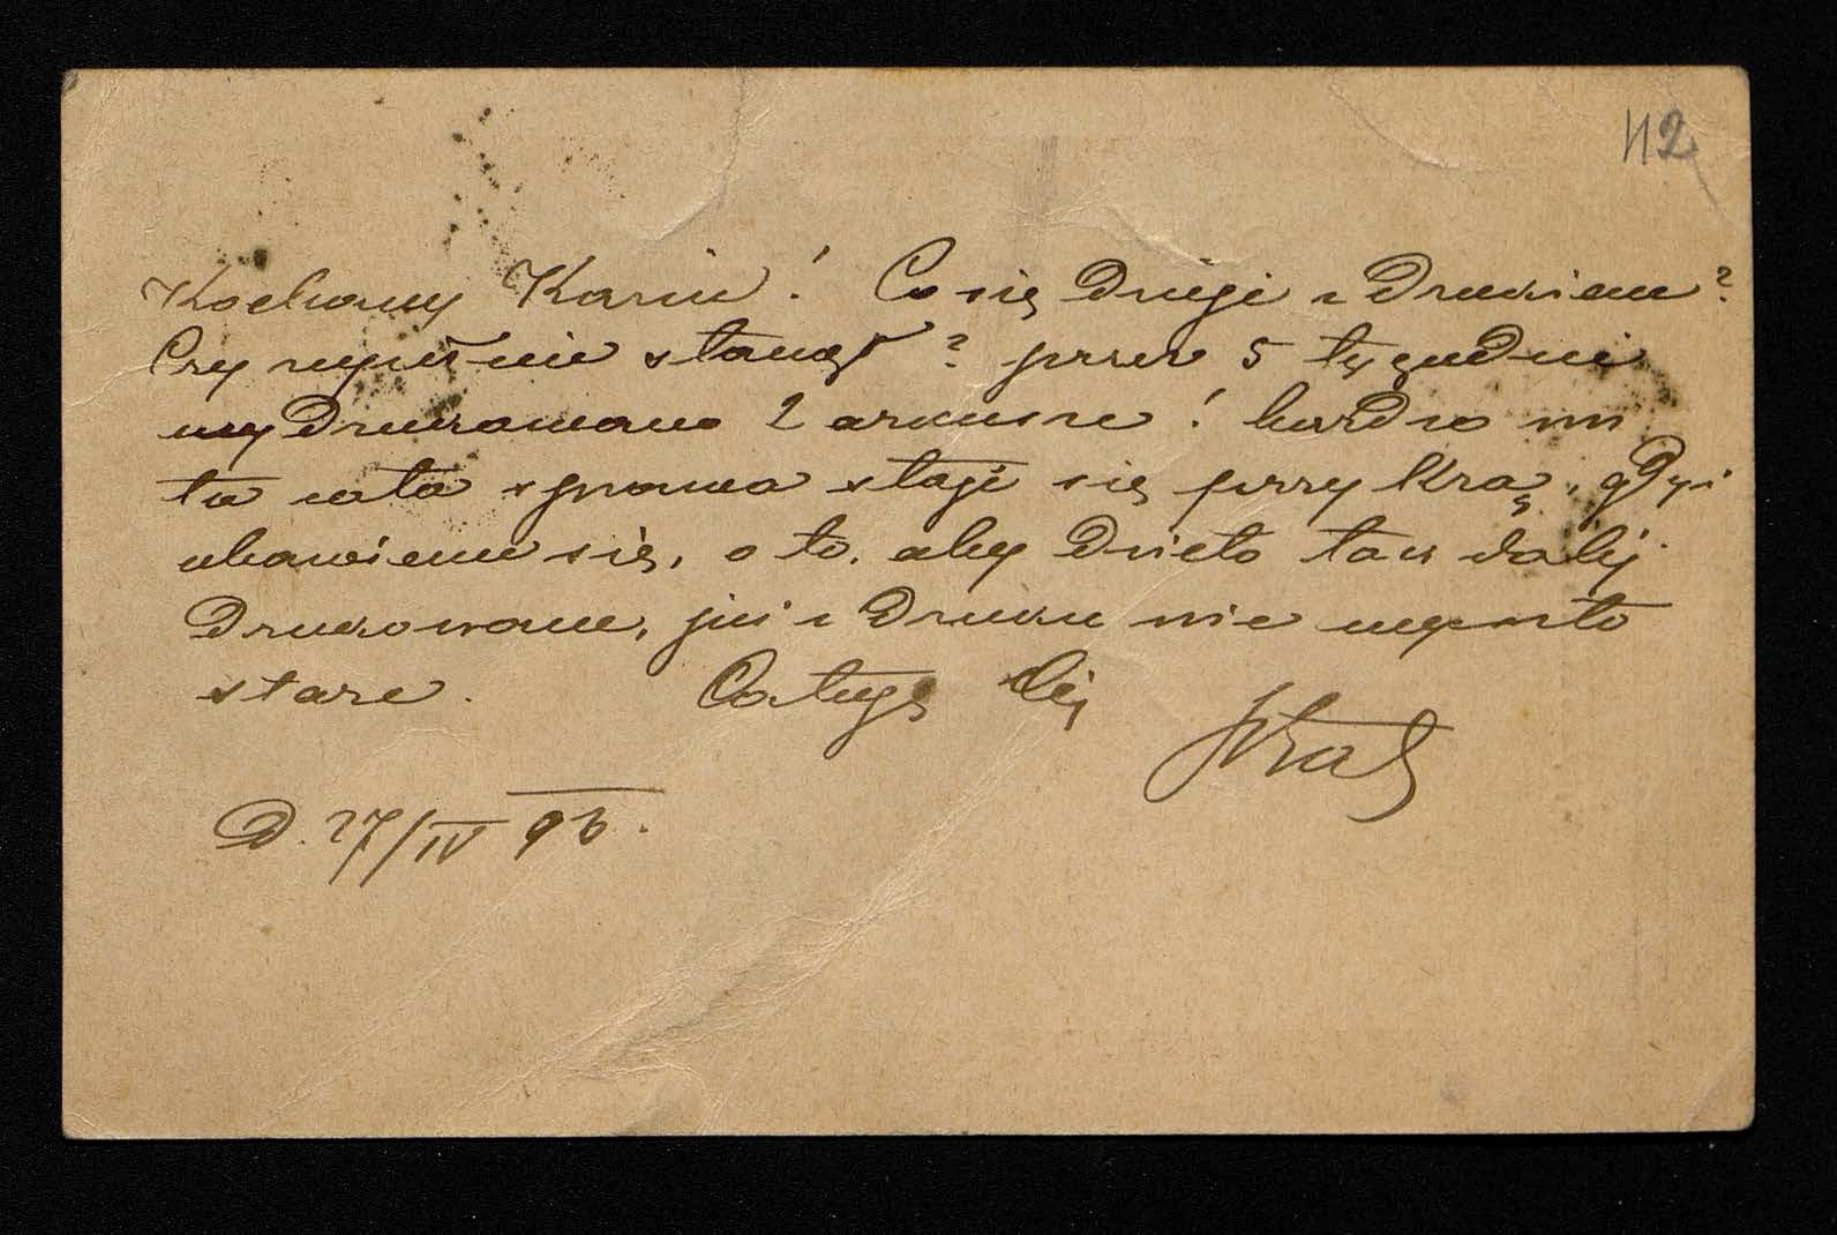 112
Kochany Kaziu! Co się dzieje z drukiem?
Czy zupełnie stanął? przez 5 tygodni
wydrukowano 2 arkusze! bardzo mi
ta cała sprawa staje się przykrą, gdyż
obawiam się, o to, aby dzieło tak dalej
drukowane, już z druku nie wyszło
stare. Całuję Cię
D. 27/IV 96.